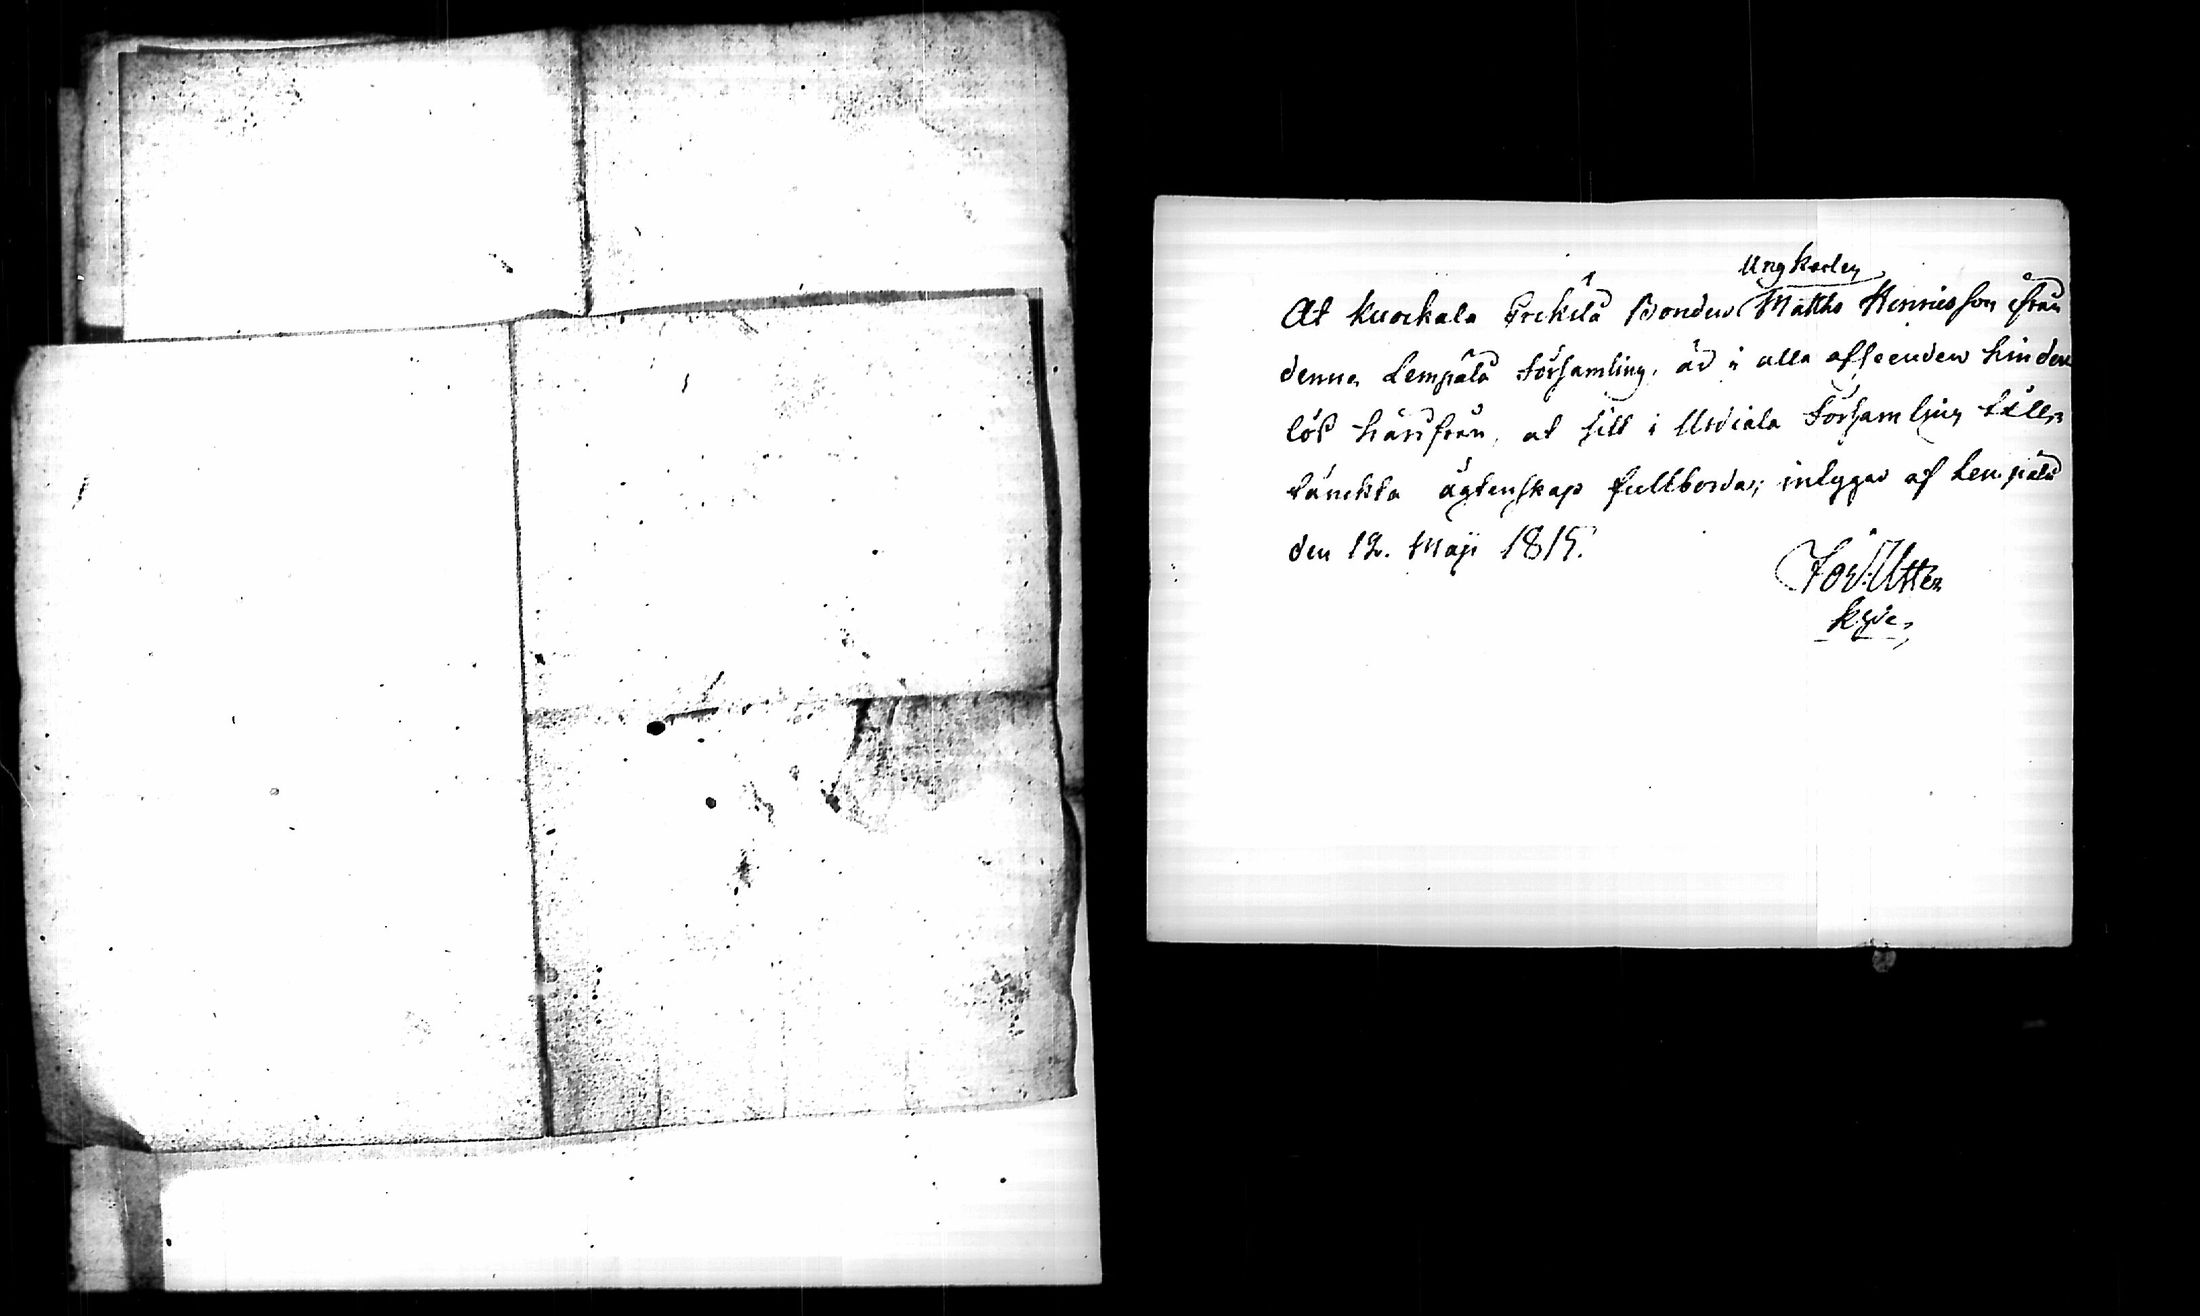 Ungkarlen
At Kuockala Erckilä Bonden Matths Henricsson ifrån
denna Lempälä Församling, är i alla afseenden hinder
lös härifrån, at sitt i Urdiala Församling till
tänckta ägtenskap fullborda; intygar af Lempälä
den 12. Maji 1815.